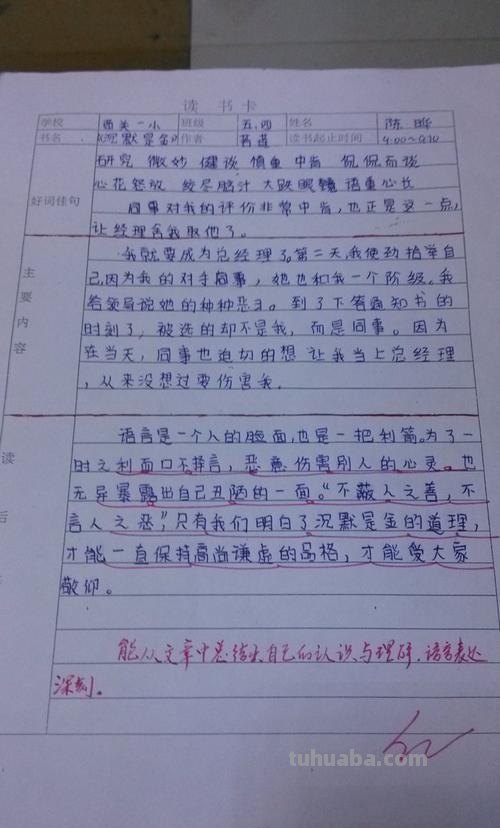 读 书 卡
学校 西关一小 班级 五.四 姓名 陈晔
书名 《沉默是金》 作者 茗莲 读书起止时间 9:00~9:10
好词佳句
研究 微妙 健谈 慎重 中肯 侃侃而谈
心花怒放 绞尽脑汁 大跌眼镜 语重心长
同事对我的评价非常中肯,也正是这一点,
让经理舍我取他了。
主要内容
我就要成为总经理了。第二天,我使劲指举自
己,因为我的对手同事,她也和我一个阶级。我
给领导说她的种种恶习。到了下答通知书的
时刻了,被选的却不是我,而是同事。因为
在当天,同事也迫切的想 让我当上总经理
,从来没想过要伤害我.
读后
语言是一个人的脸面,也是一把利箭。为了一
时之利而口不择言,恶意伤害别人的心灵。也
无异暴露出自己丑陋的一面。“不蔽人之善,不
言人之恶”,只有我们明白了沉默是金的道理,
才能一直保持高尚谦虚的品格,才能受大家
敬仰。
能从文章中总结出自己的认识与理解,语言表达
深刻。
tuhuaba.com